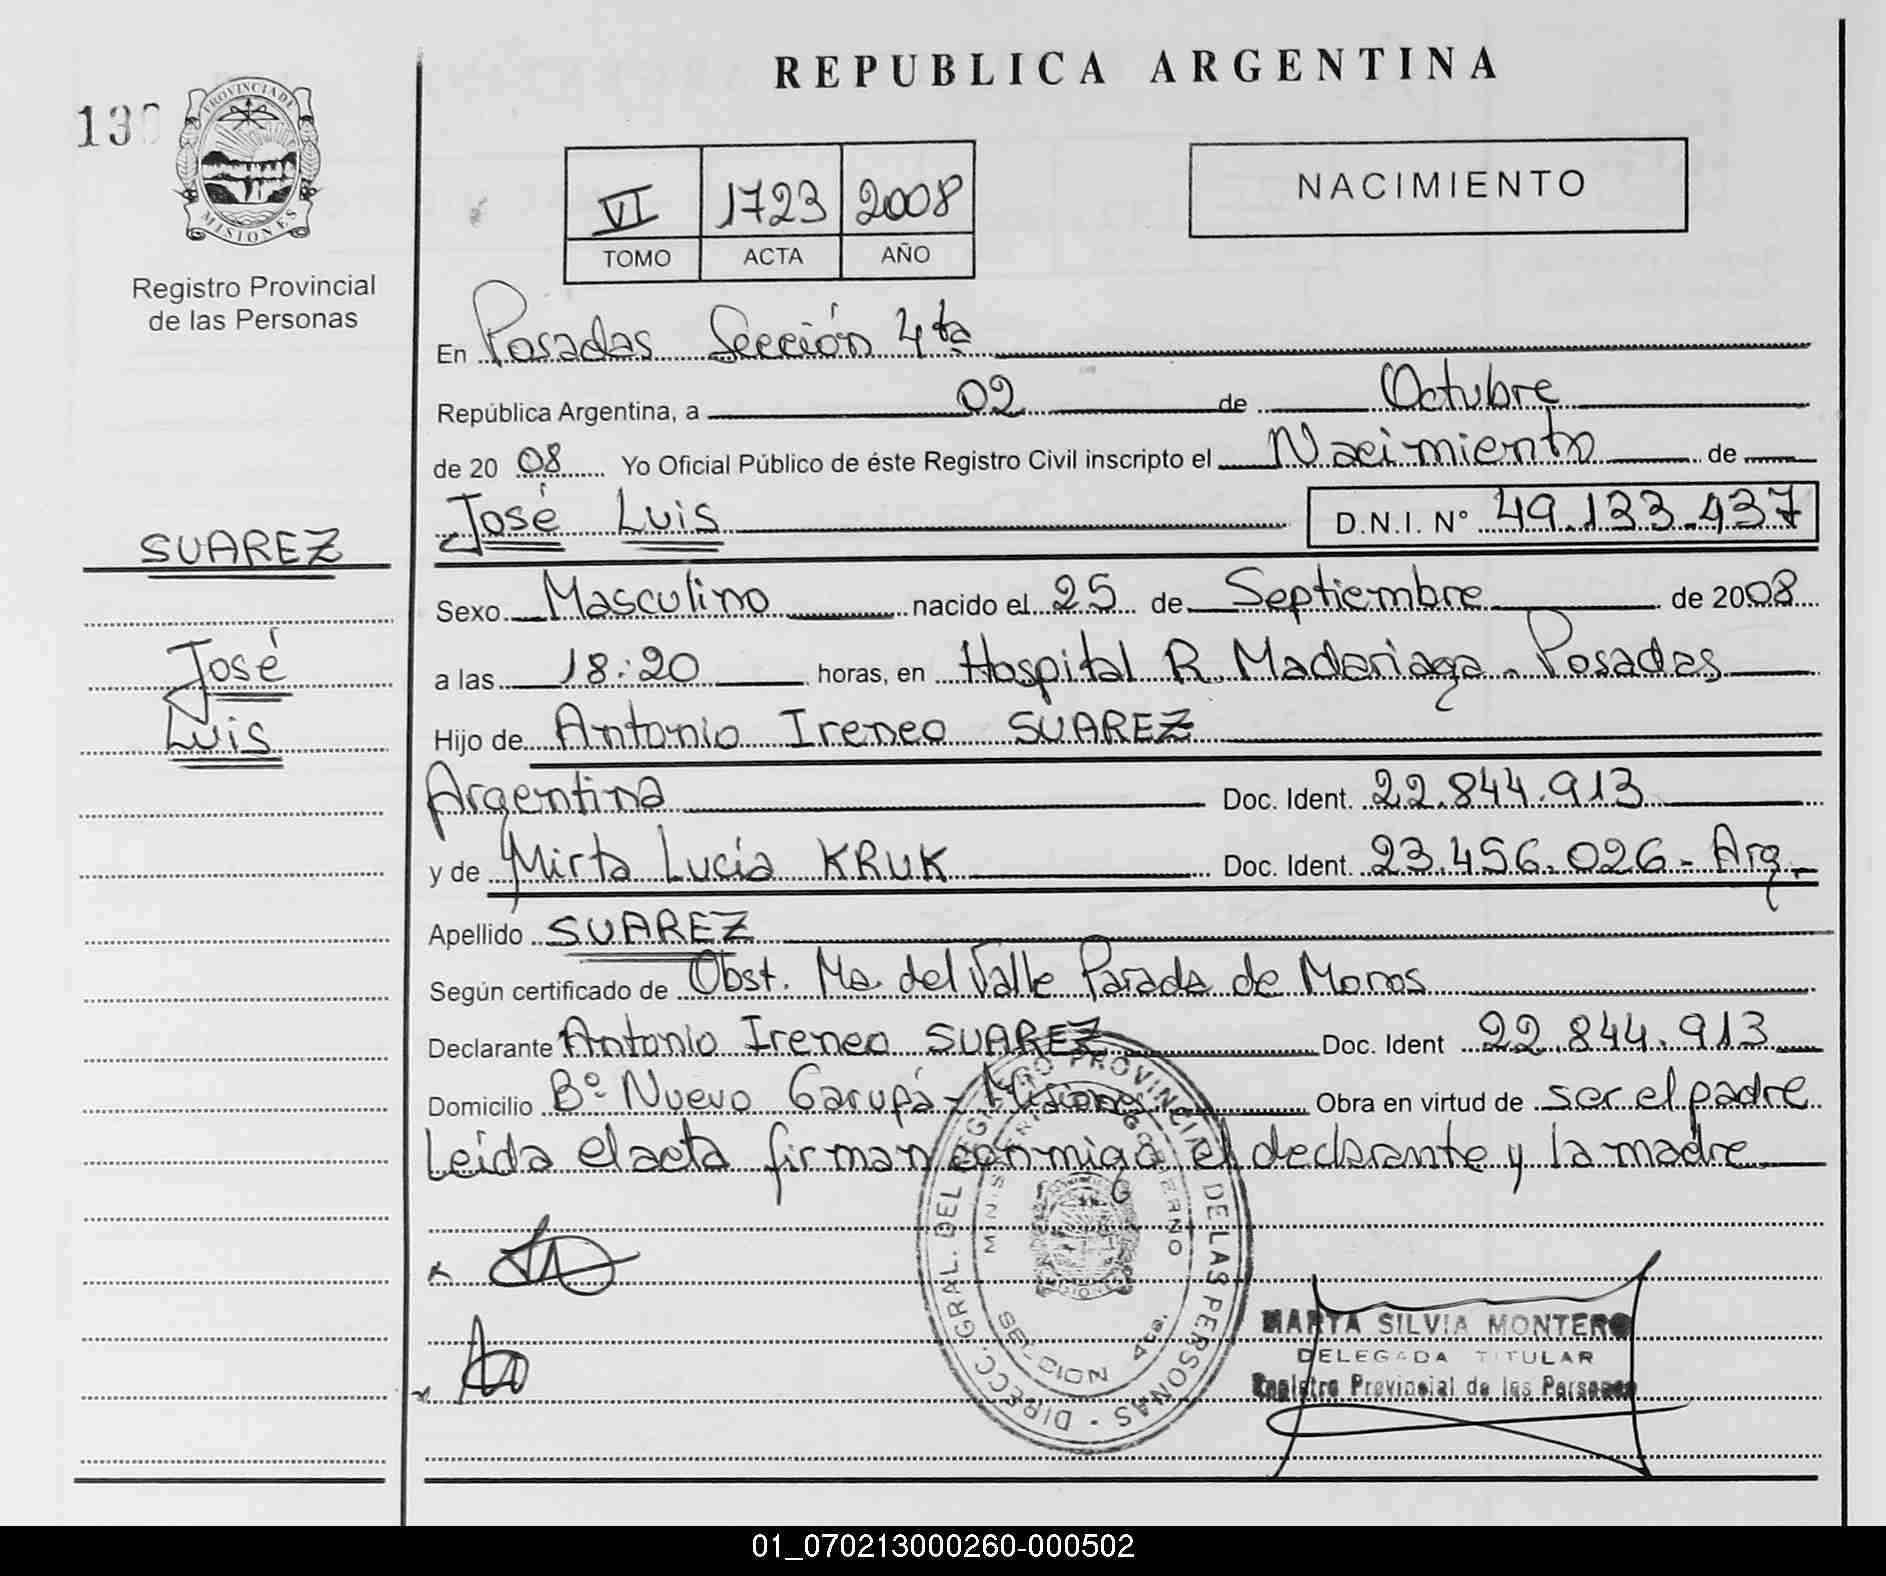 REPUBLICA ARGENTINA
PROVINCIA DE
MISIONES
Registro Provincial
de las Personas
VI 1723 2008
TOMO ACTA AÑO
NACIMIENTO
En Posadas Sección 4ta
República Argentina, a 02 de Octubre
de 2008 Yo Oficial Público de éste Registro Civil inscripto el Nacimiento de
José Luis D.N.I. N° 49.133.437
SUAREZ
José
Luis
Sexo Masculino nacido el 25 de Septiembre de 2008
a las 18:20 horas, en Hospital R. Madariaga - Posadas
Hijo de Antonio Ireneo SUAREZ
Argentina Doc. Ident. 22.844.913
y de Mirta Lucía KRUK Doc. Ident. 23.456.026 - Arg.
Apellido SUAREZ
Según certificado de Obst. Ma. del Valle Parada de Moros
Declarante Antonio Ireneo SUAREZ Doc. Ident 22.844.913
Domicilio B° Nuevo Garupá - Misiones Obra en virtud de ser el padre
Leída el acta firman conmigo el declarante y la madre
DIRECC. GRAL. DEL REGISTRO PROVINCIAL DE LAS PERSONAS
SECCION 4ta.
MARTA SILVIA MONTERO
DELEGADA TITULAR
Registro Provincial de las Personas
01_070213000260-000502